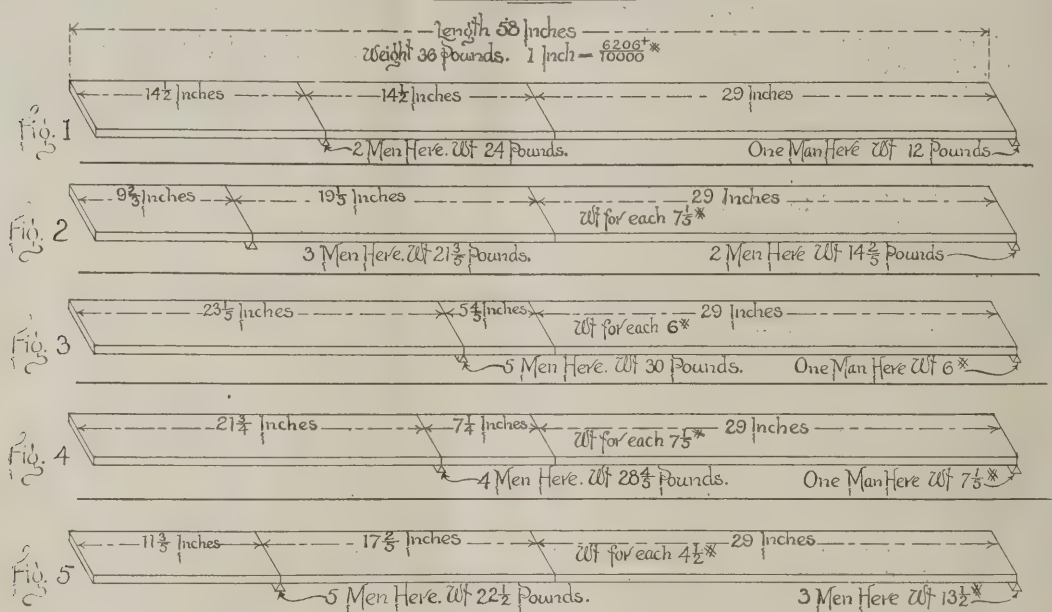 Length 58 Inches
Weight 36 Pounds. 1 Inch = 6206+/10000 #
Fig. 1
14½ Inches 14½ Inches 29 Inches
2 Men Here. Wt 24 Pounds. One Man Here Wt 12 Pounds
Fig. 2
9⅔ Inches 19⅓ Inches 29 Inches
Wt for each 7⅕#
3 Men Here. Wt 21⅗ Pounds. 2 Men Here Wt 14⅖ Pounds
Fig. 3
23⅕ Inches 5⅘ Inches 29 Inches
Wt for each 6#
5 Men Here. Wt 30 Pounds. One Man Here Wt 6#
Fig. 4
21¾ Inches 7¼ Inches 29 Inches
Wt for each 7⅕#
4 Men Here. Wt 28⅘ Pounds. One Man Here Wt 7⅕#
Fig. 5
11⅗ Inches 17⅖ Inches 29 Inches
Wt for each 4½#
5 Men Here. Wt 22½ Pounds. 3 Men Here Wt 13½#